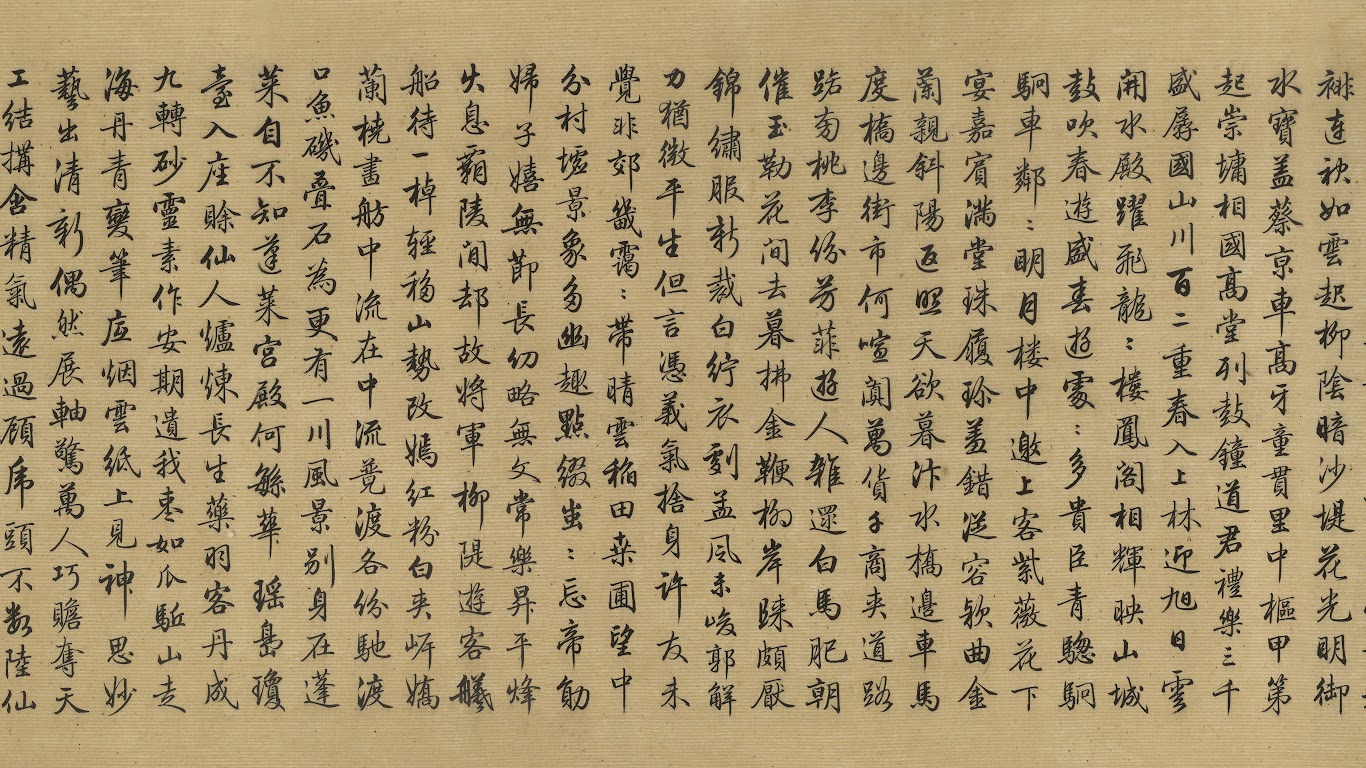 褂连袂如雲起柳陰暗沙堤花光明御
水寶盖蔡京車高牙童貫里中樞甲第
起崇墉相國高堂列鼓鐘道君禮樂三千
盛孱國山川百二重春入上林迎旭日雲
開水殿躍飛龍〻樓鳳阁相輝映山城
鼓吹春遊盛春遊處〻多貴臣青驄駉
駉車鄰〻明月楼中邀上客紫薇花下
宴嘉賓滿堂珠履珎盖錯從容欵曲金
蘭親斜陽返照天欲暮汴水橋邊車馬
度橋邊街市何喧闐萬貨千商夾道路
路旁桃李份芳菲遊人雜還白馬肥朝
催玉勒花间去暮拂金鞭柳岸歸頗厭
錦繡服新裁白紵衣劇孟风未峻郭解
力猶微平生但言憑義氣捨身許友未
覺非郊畿靄〻帶晴雲稻田桒圃望中
分村墟景象多幽趣點缀蚩〻忘帝勛
婦子嬉無節長幼略無文常樂昇平烽
火息霸陵间却故將軍柳隄遊客艤
船待一棹輕移山勢改嫣紅粉白夹岍嬌
蘭橈畫舫中流在中流竞渡各份馳渡
口魚磯叠石為更有一川風景别身在蓬
莱自不知蓬莱宫殿何緐華瑶島瓊
臺入座賒仙人爐煉長生藥羽客丹成
九轉砂靈素作安期遺我枣如瓜駈山走
海丹青變筆底烟雲紙上見神思妙
藝出清新偶然展軸驚萬人巧瞻奪天
工結搆含精氣遠過顾虎頭不数陸仙